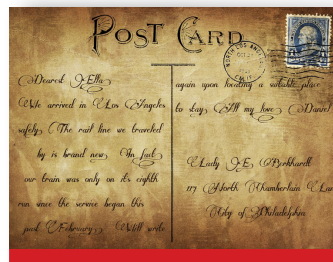 POST CARD
NORTH LOS ANGELES
CALIF.
Dearest Ella
We arrived in Los Angeles
safely. The rail line we traveled
by is brand new. In fact
our train was only on its eighth
run since the service began this
past February. Will write
again upon locating a suitable place
to stay. All my love, Daniel
Lady E. Berkhardt
117 North Chamberlain
City of Philadelphia